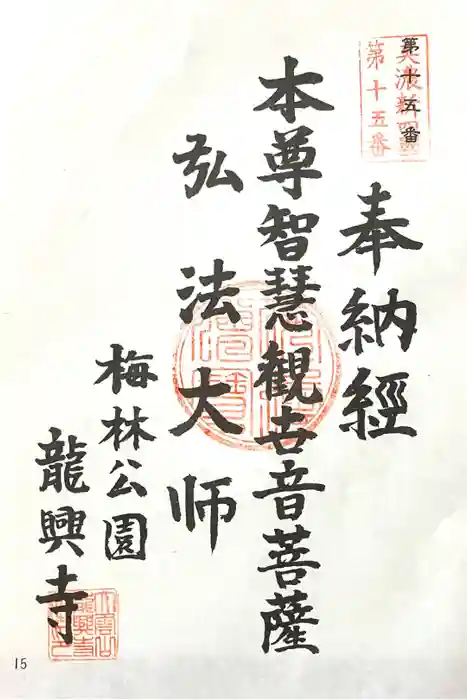 第十五番
美濃新四国
第十五番
奉納經
本尊智慧觀世音菩薩
弘法大师
梅林公園
龍興寺
15